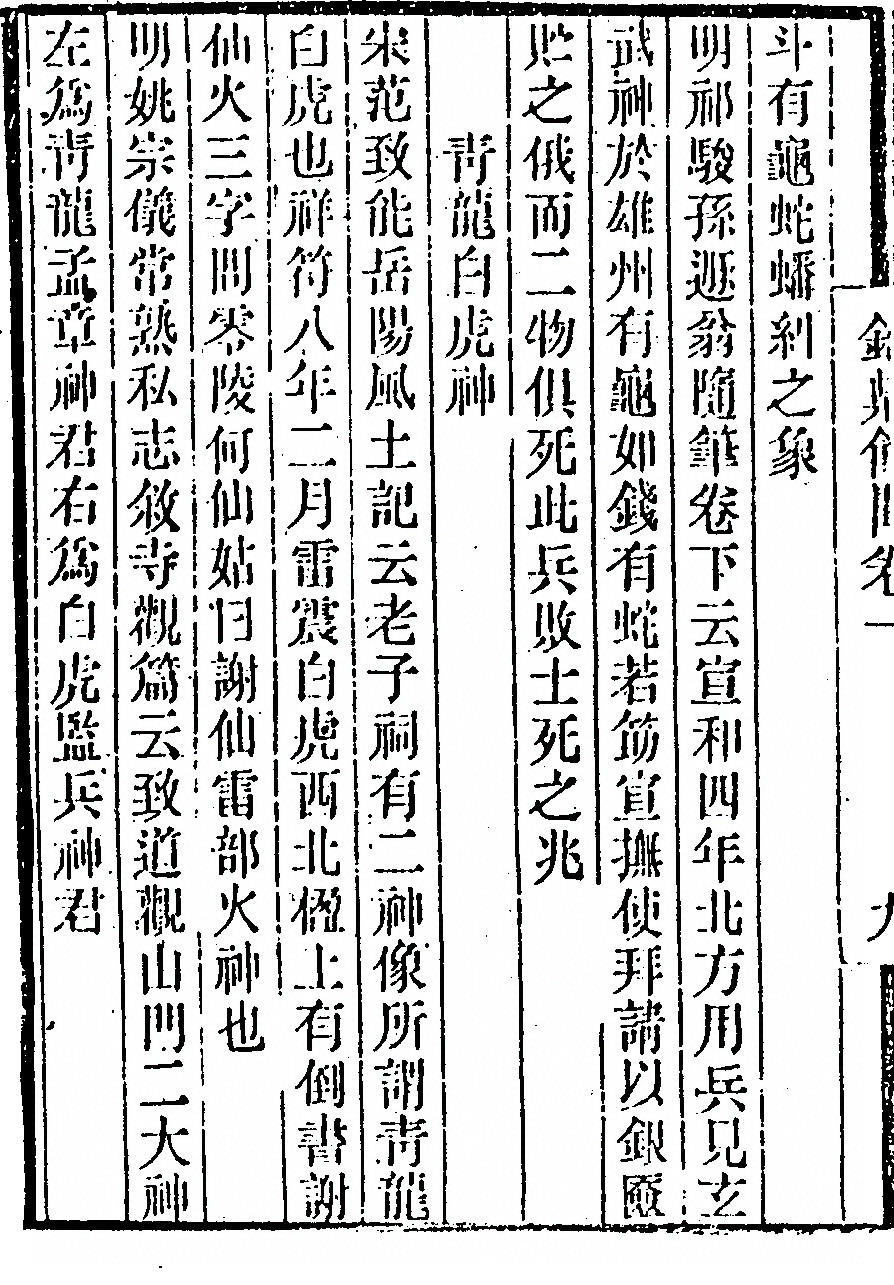 斗有龜蛇蟠糾之象
明祁駿孫遯翁隨筆卷下云宣和四年北方用兵見玄
武神於雄州有龜如錢有蛇若筯宣撫使拜請以銀匣
貯之俄而二物俱死此兵敗士死之兆
青龍白虎神
宋范致能岳陽風土記云老子祠有二神像所謂青龍
白虎也祥符八年二月雷震白虎西北楹上有倒書謝
仙火三字問零陵何仙姑曰謝仙雷部火神也
明姚宗儀常熟私志敘寺觀篇云致道觀山門二大神
左爲青龍孟章神君右爲白虎監兵神君
卷一
九